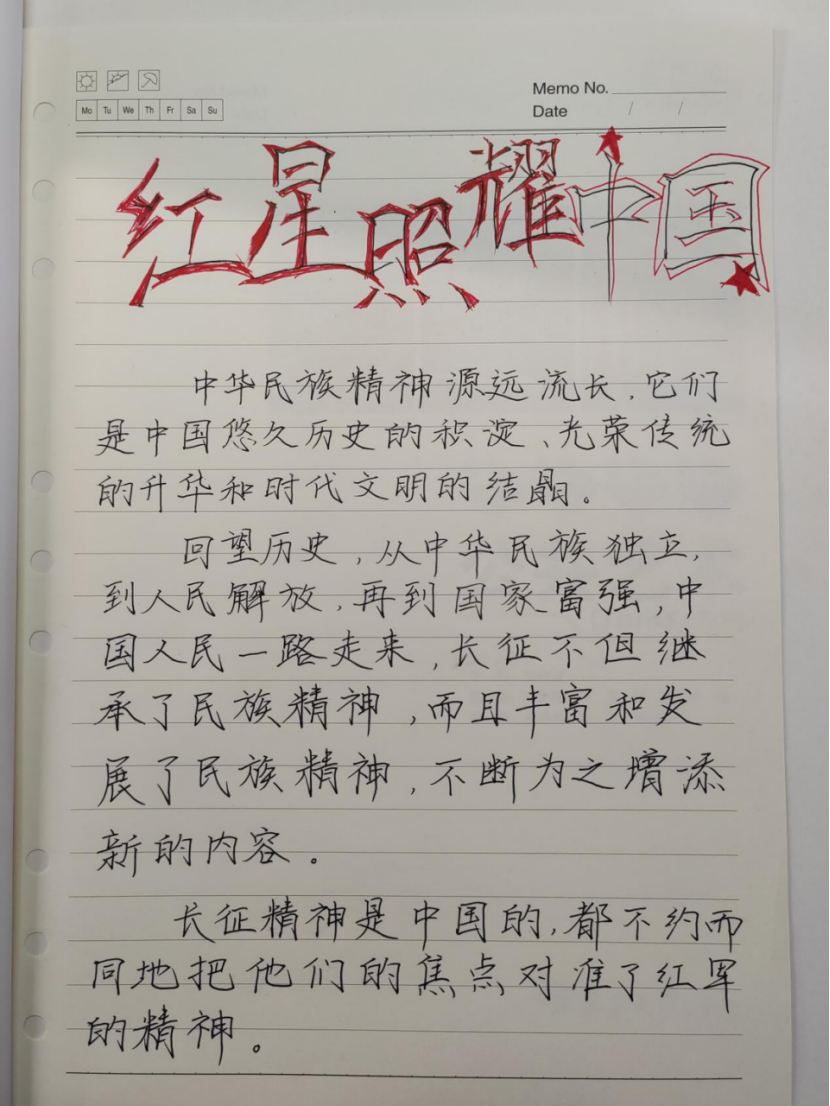 Memo No.
Mo Tu We Th Fr Sa Su
Date / /
红星照耀中国
中华民族精神源远流长，它们
是中国悠久历史的积淀、光荣传统
的升华和时代文明的结晶。
回望历史，从中华民族独立，
到人民解放，再到国家富强，中
国人民一路走来，长征不但继
承了民族精神，而且丰富和发
展了民族精神，不断为之增添
新的内容。
长征精神是中国的，都不约而
同地把他们的焦点对准了红军
的精神。